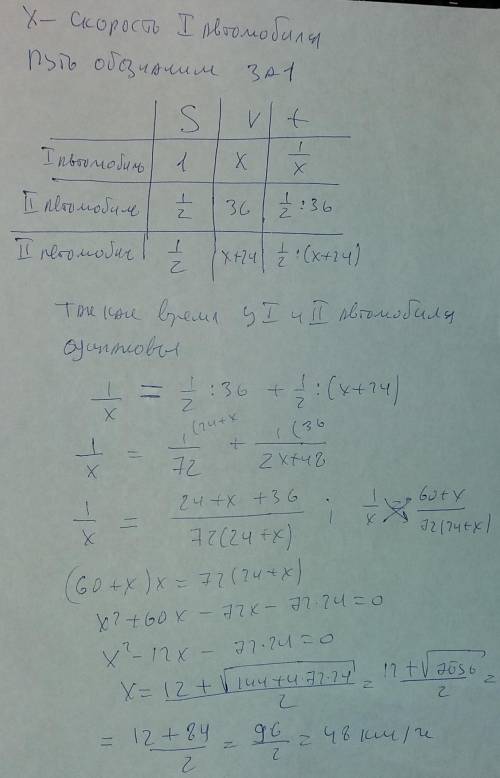 X – скорость I автомобиля
Путь обозначим за 1
S V t
I автомобиль 1 x 1/x
II автомобиль 1/2 36 1/2 : 36
II автомобиль 1/2 x+24 1/2 : (x+24)
Так как время у I и II автомобиля
одинаковы
1/x = 1/2 : 36 + 1/2 : (x+24)
1/x = 1(24+x / 72 + 1(36 / 2x+48
1/x = 24+x+36 / 72(24+x) ; 1/x = 60+x / 72(24+x)
(60+x)x = 72(24+x)
x² + 60x – 72x – 72·24 = 0
x² – 12x – 72·24 = 0
x = 12 + √144+4·72·24 / 2 = 12 + √7056 / 2 =
= 12 + 84 / 2 = 96 / 2 = 48 км/ч